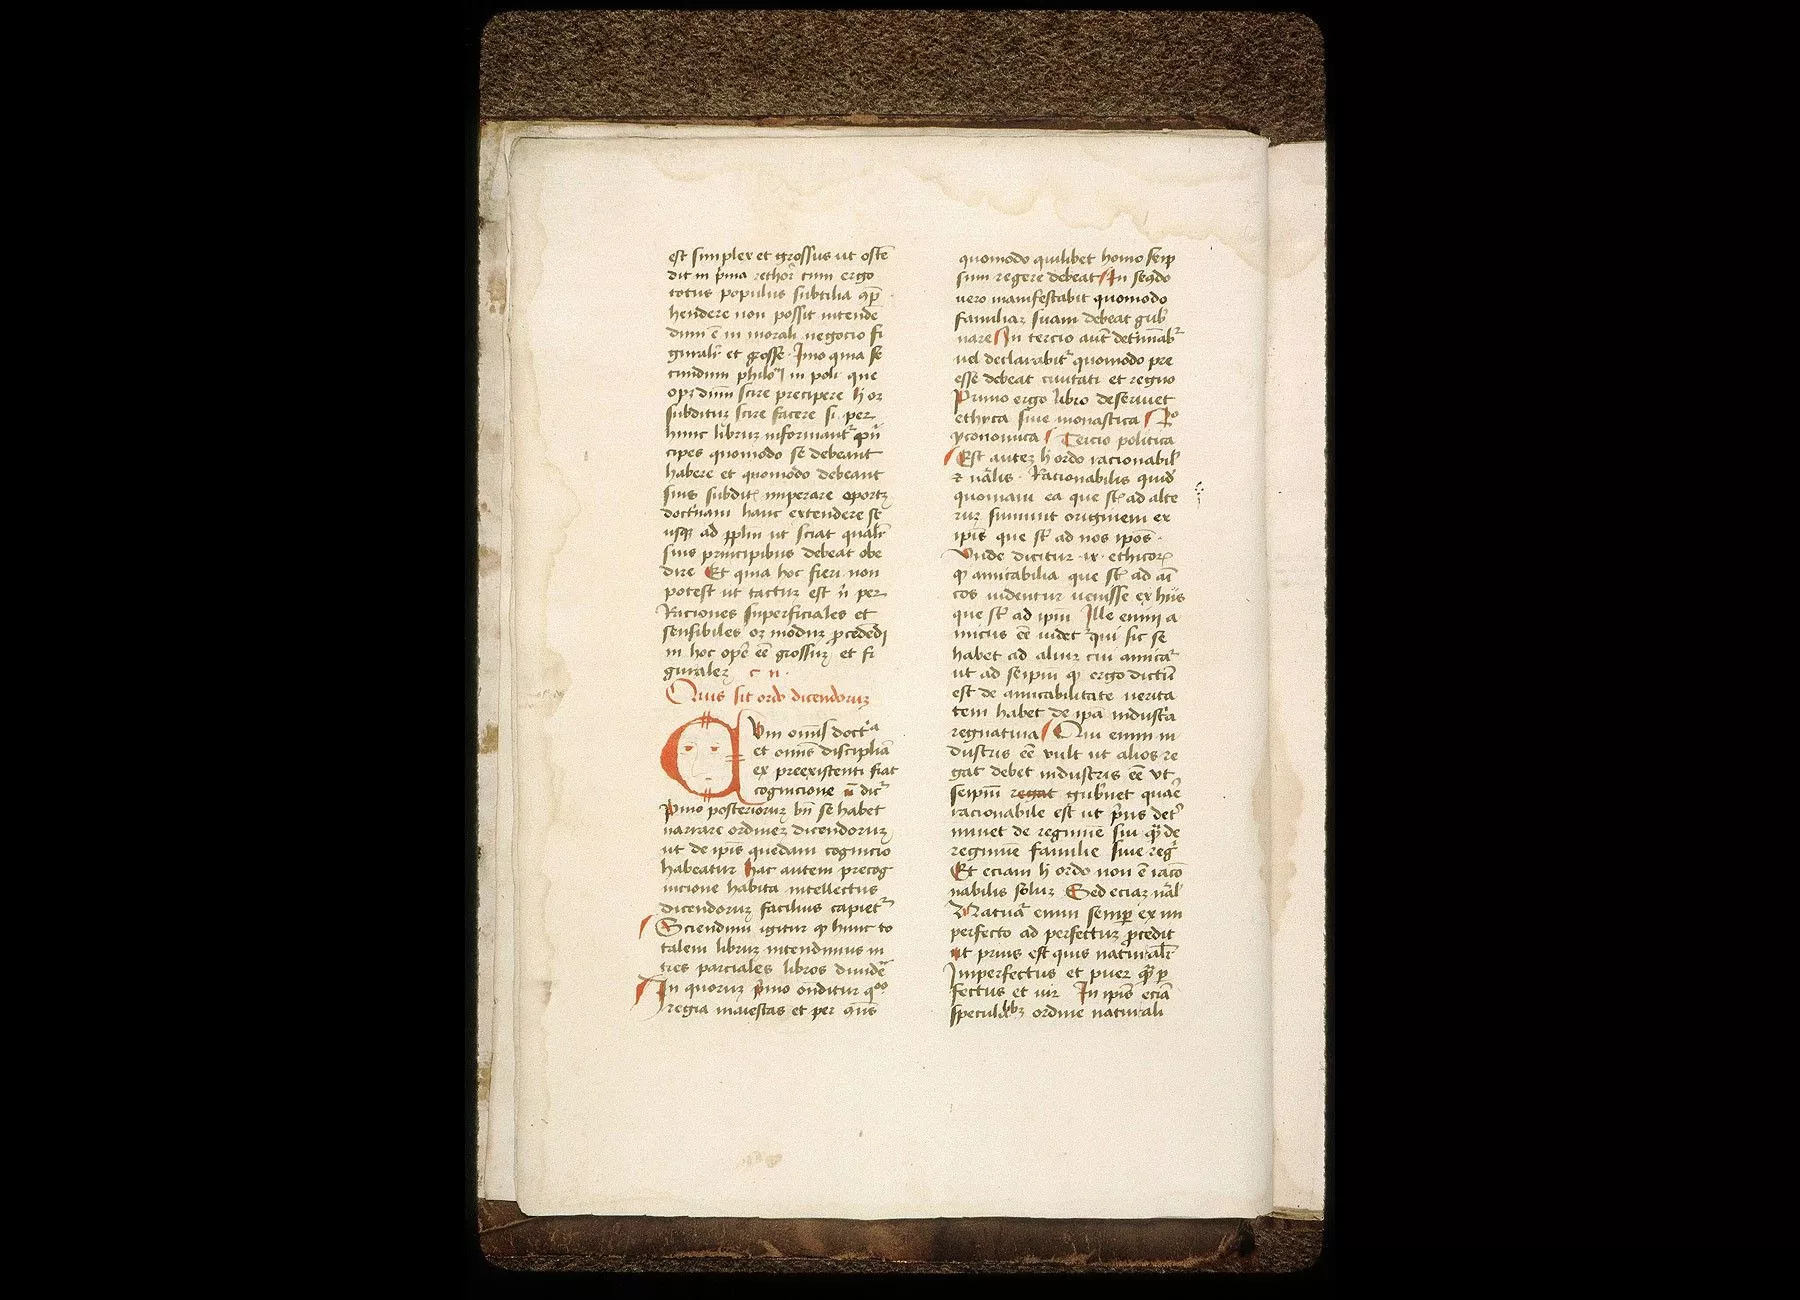 est simplex et grossus ut oste
dit in p̄ma rethor̄ cum ergo
totus populus subtilia ↄp̄
hendere non possit intende
dum ē in morali negocio fi
guralr̄ et grosse · Imo quia se
cundum philo in poli que
subditus scire facere si per
hunc librum informant᷑ p̄n
cipes quomodo se debeant
habere et quomodo debeant
suis subditꝭ imperare oportꝫ
doctrinam hanc extendere se
usqꝫ ad pplm ut sciat qualr̄
suis principibus debeat obe
dire Et quia hoc fieri non
potest ut tactum est n̄ per
Raciones superficiales et
sensibiles oꝫ modum ꝓcedēdi
in hoc ope ēē grossuꝫ et fi
guraleꝫ c n ·
Quis sit ordo dicendoruꝫ
Cum omnis doctᵃ
et omis disciplīa
ex preexistenti fiat
cognicione ut dic᷑
p̄mo posterioruꝫ bn̄ se habet
narrare ordineꝫ dicendoruꝫ
ut de ip̄is quedam cognicio
habeatur hac autem precog
nicione habita intellectus
dicendoruꝫ facilius capiet᷑
Sciendum igitur ꝙ hunc to
talem libruꝫ intendimus in
tres parciales libros diuidē
In quoruꝫ p̄mo ondītur qᵒᵒ
regia maiestas et per ꝯn̄s
quomodo quilibet homo seip
sum regere debeat In secd̄o
uero manifestabit quomodo
familiaꝫ suam debeat gub̄
nare In tercio aut̄ det̄minab᷑
uel declarabit᷑ quomodo pre
esse debeat ciuitati et regno
Primo ergo libro deseruiet
ethyca siue monastica 2º
yconomica Tercio politica
Est auteꝫ h ordo racionabil̄
⁊ nālis · Racionabilis quid̄
quoniam ea que st̄ ad alte
ruꝫ sumunt originem ex
ip̄is que st̄ ad nos ip̄os ·
Vnde dicitur · ix · ethicoꝝ
ꝙ amicabilia que st̄ ad am̄i
cos uidentur uenisse ex hiis
que st̄ ad ip̄m Ille enim a
micus ēē uidet᷑ qui sic se
habet ad aliuꝫ cui amicat᷑
ut ad seip̄m ꝙ ergo dictum
est de amicabilitate uerita
tem habet de ip̄a industria
regnatiua Qui enim in
dustris ēē vult ut alios re
gat debet industris ēē vt
seip̄m regat gub̄net quare
racionabile est ut p̄us det̄
minet de regimīe sui q̄ de
regimīe familie siue reḡ
Et eciam h ordo non ē racō
nabilis soluꝫ Sed eciaꝫ nāl̄
Natura enim semꝑ ex im
perfecto ad perfectuꝫ ꝓcedit
ut prius est quis naturalr̄
Imperfectus et puer q̄ ꝑ
fectus et uir In ip̄is eciā
speculabibꝫ ordine naturali